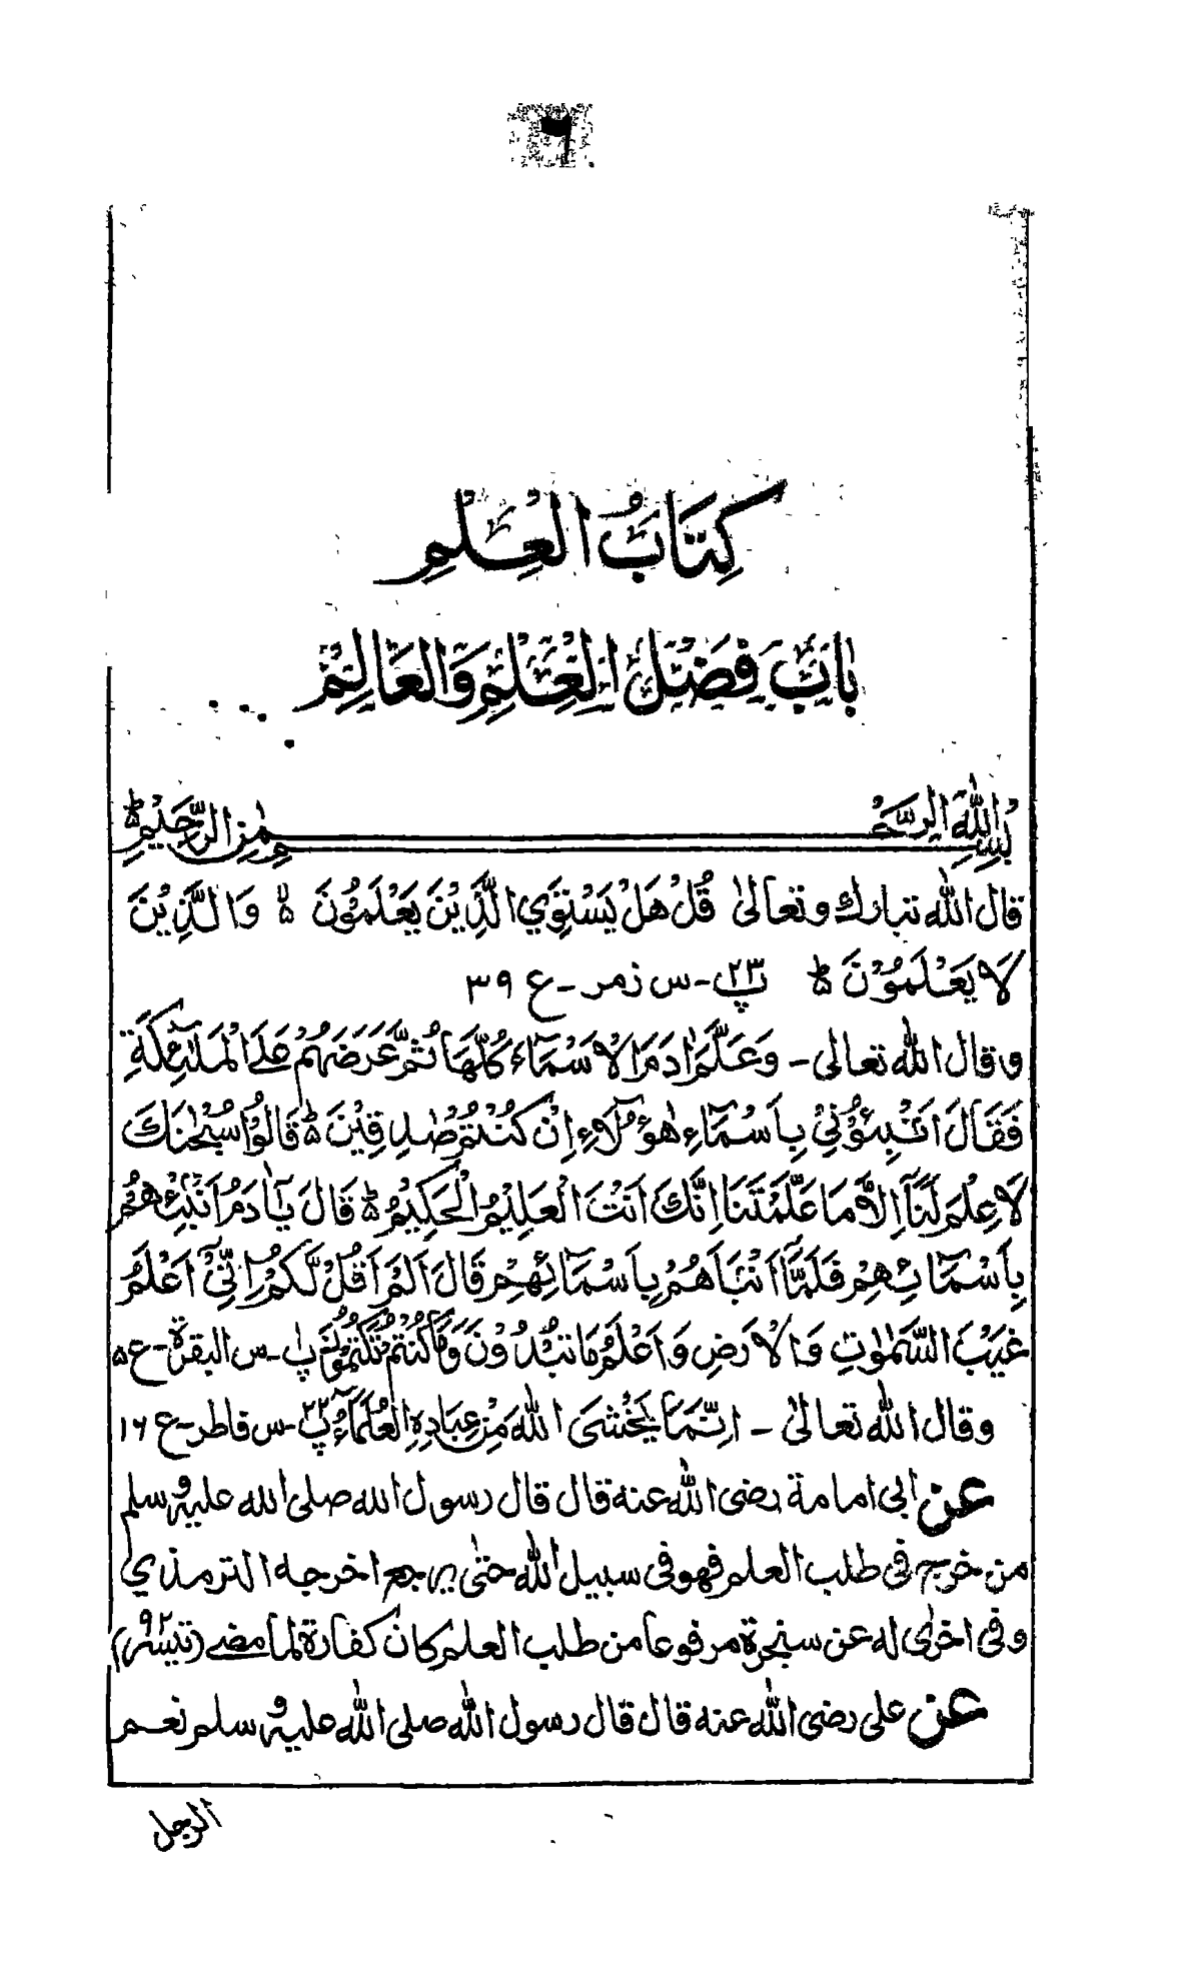 ٦
كِتَابُ الْعِلْمِ
بَابُ فَضْلِ الْعِلْمِ وَالْعَالِمْ
بِسْمِ اللهِ الرَّحْمٰنِ الرَّحِيْمِ ط
قال الله تبارك وتعالىٰ قُلْ هَلْ يَسْتَوِي الَّذِيْنَ يَعْلَمُوْنَ لا وَالَّذِيْنَ
لَا يَعْلَمُوْنَ ط پ۲۳-س زمر-ع ۳۹
وقال الله تعالى - وَعَلَّمَ اٰدَمَ الْاَسْمَآءَ كُلَّهَا ثُمَّ عَرَضَهُمْ عَلَى الْمَلٰٓئِكَةِ
فَقَالَ اَنْۢبِئُوْنِيْ بِاَسْمَآءِ هٰٓؤُلَآءِ اِنْ كُنْتُمْ صٰدِقِيْنَ ط قَالُوْا سُبْحٰنَكَ
لَا عِلْمَ لَنَآ اِلَّا مَا عَلَّمْتَنَا اِنَّكَ اَنْتَ الْعَلِيْمُ الْحَكِيْمُ ط قَالَ يَآ اٰدَمُ اَنْۢبِئْهُمْ
بِاَسْمَآئِهِمْ فَلَمَّآ اَنْۢبَاَهُمْ بِاَسْمَآئِهِمْ قَالَ اَلَمْ اَقُلْ لَّكُمْ اِنِّيْٓ اَعْلَمُ
غَيْبَ السَّمٰوٰتِ وَالْاَرْضِ وَاَعْلَمُ مَا تُبْدُوْنَ وَمَا كُنْتُمْ تَكْتُمُوْنَ پ۱-س البقرة-ع ۵
وقال الله تعالىٰ - اِنَّمَا يَخْشَى اللهَ مِنْ عِبَادِهِ الْعُلَمَآءُ پ۲۲-س فاطر-ع ۱۶
عن ابى امامة رضى الله عنه قال قال رسول الله صلى الله عليه وسلم
من خرج فى طلب العلم فهو فى سبيل الله حتٰى يرجع اخرجه الترمذي
وفى اخرٰى له عن سنجرة مرفوعا من طلب العلم كان كفارة لما مضے (تيسير ۹۲)
عن على رضى الله عنه قال قال رسول الله صلى الله عليه وسلم نعم
الرجل